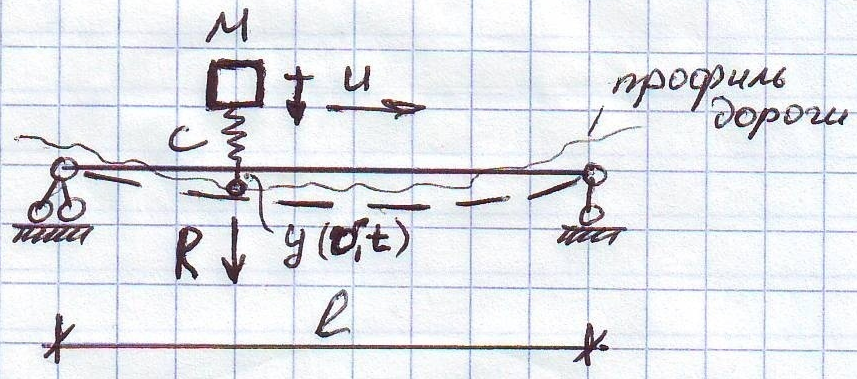 M
+ u
профиль
дороги
c
R
y(v,t)
l